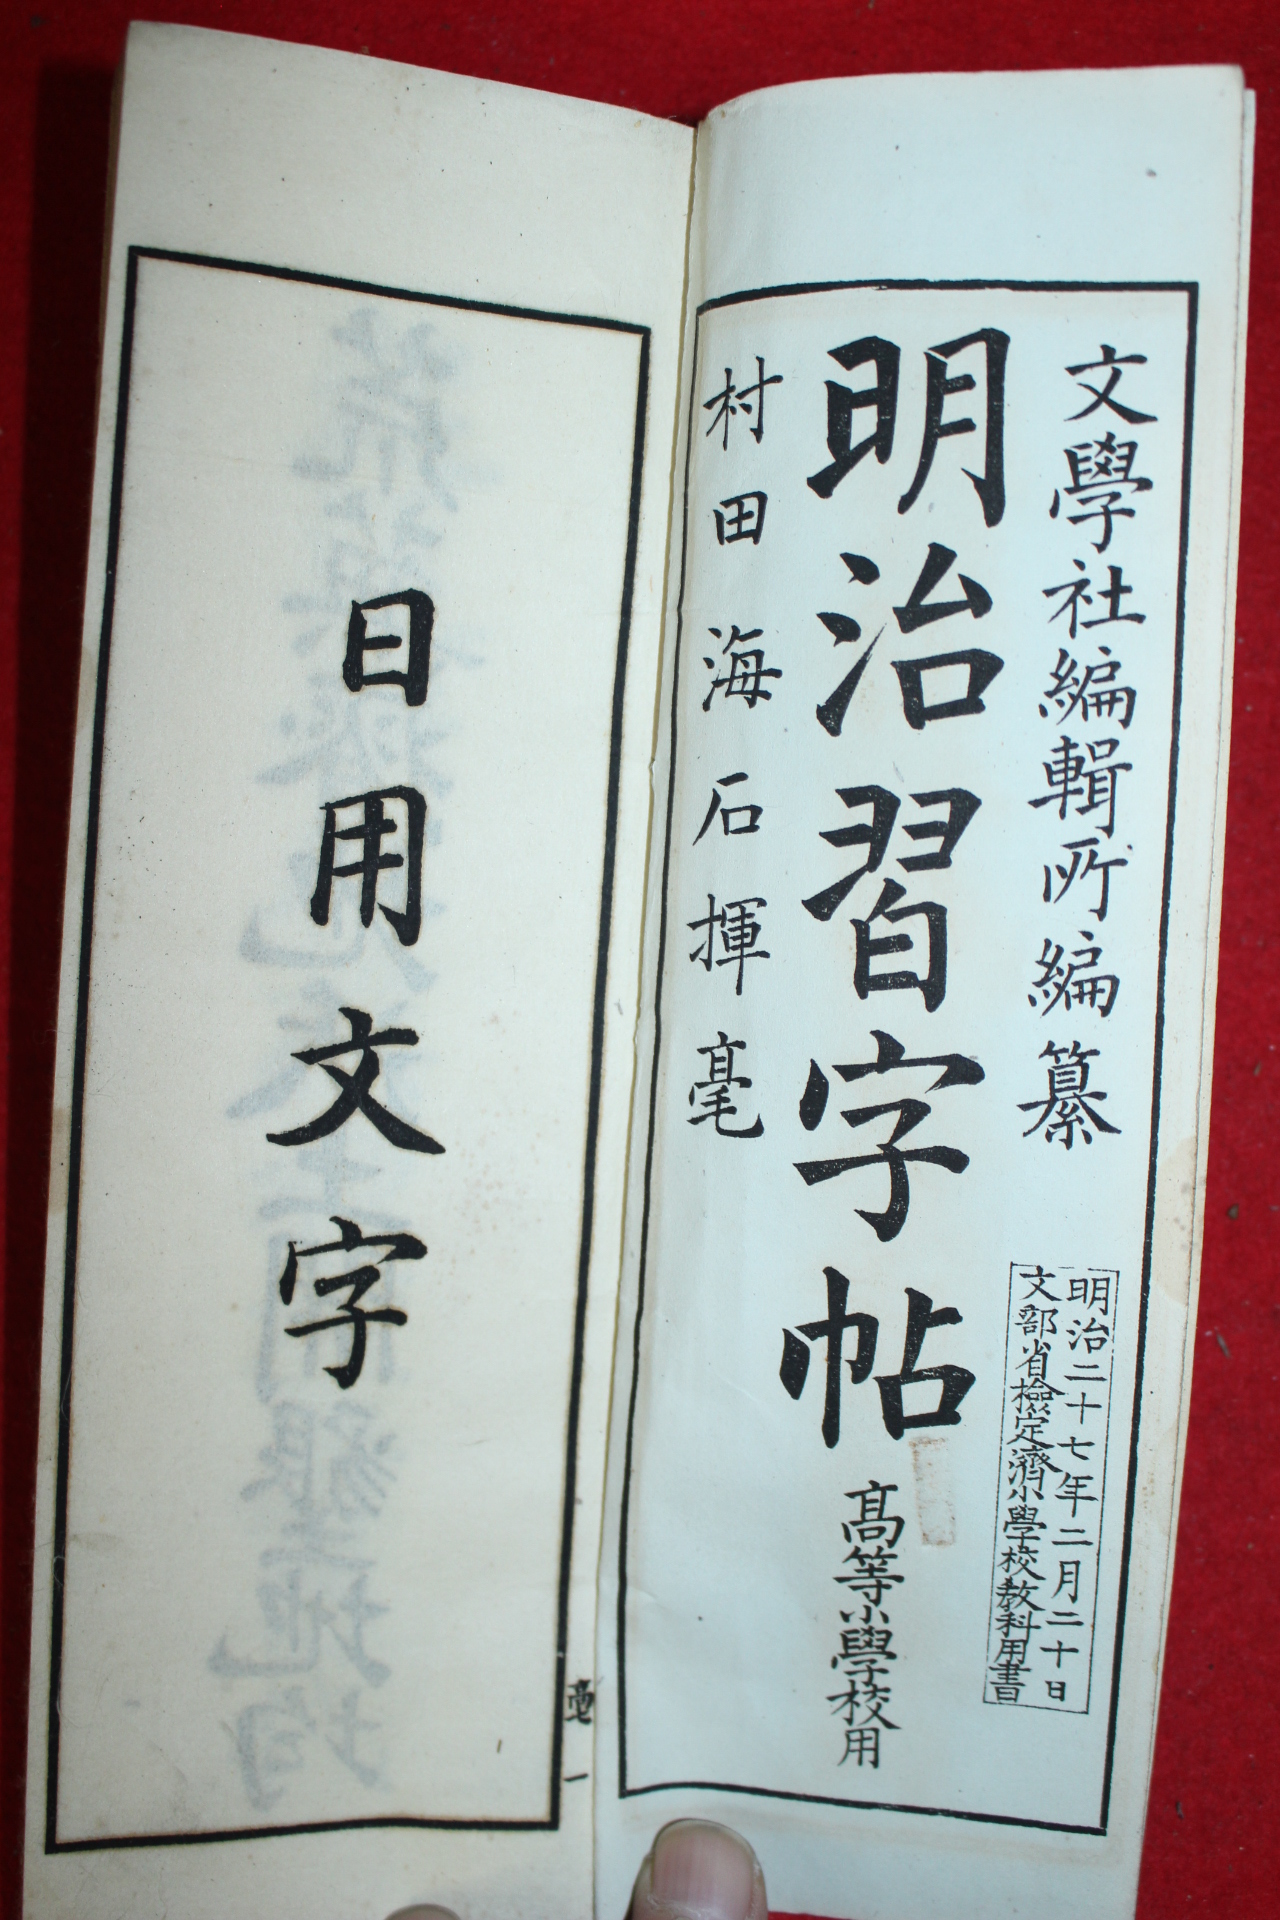 文學社編輯所編纂
明治二十七年二月二十日
文部省檢定濟小學校教科用書
明治習字帖
高等小學校用
村田海石揮毫
日用文字
一